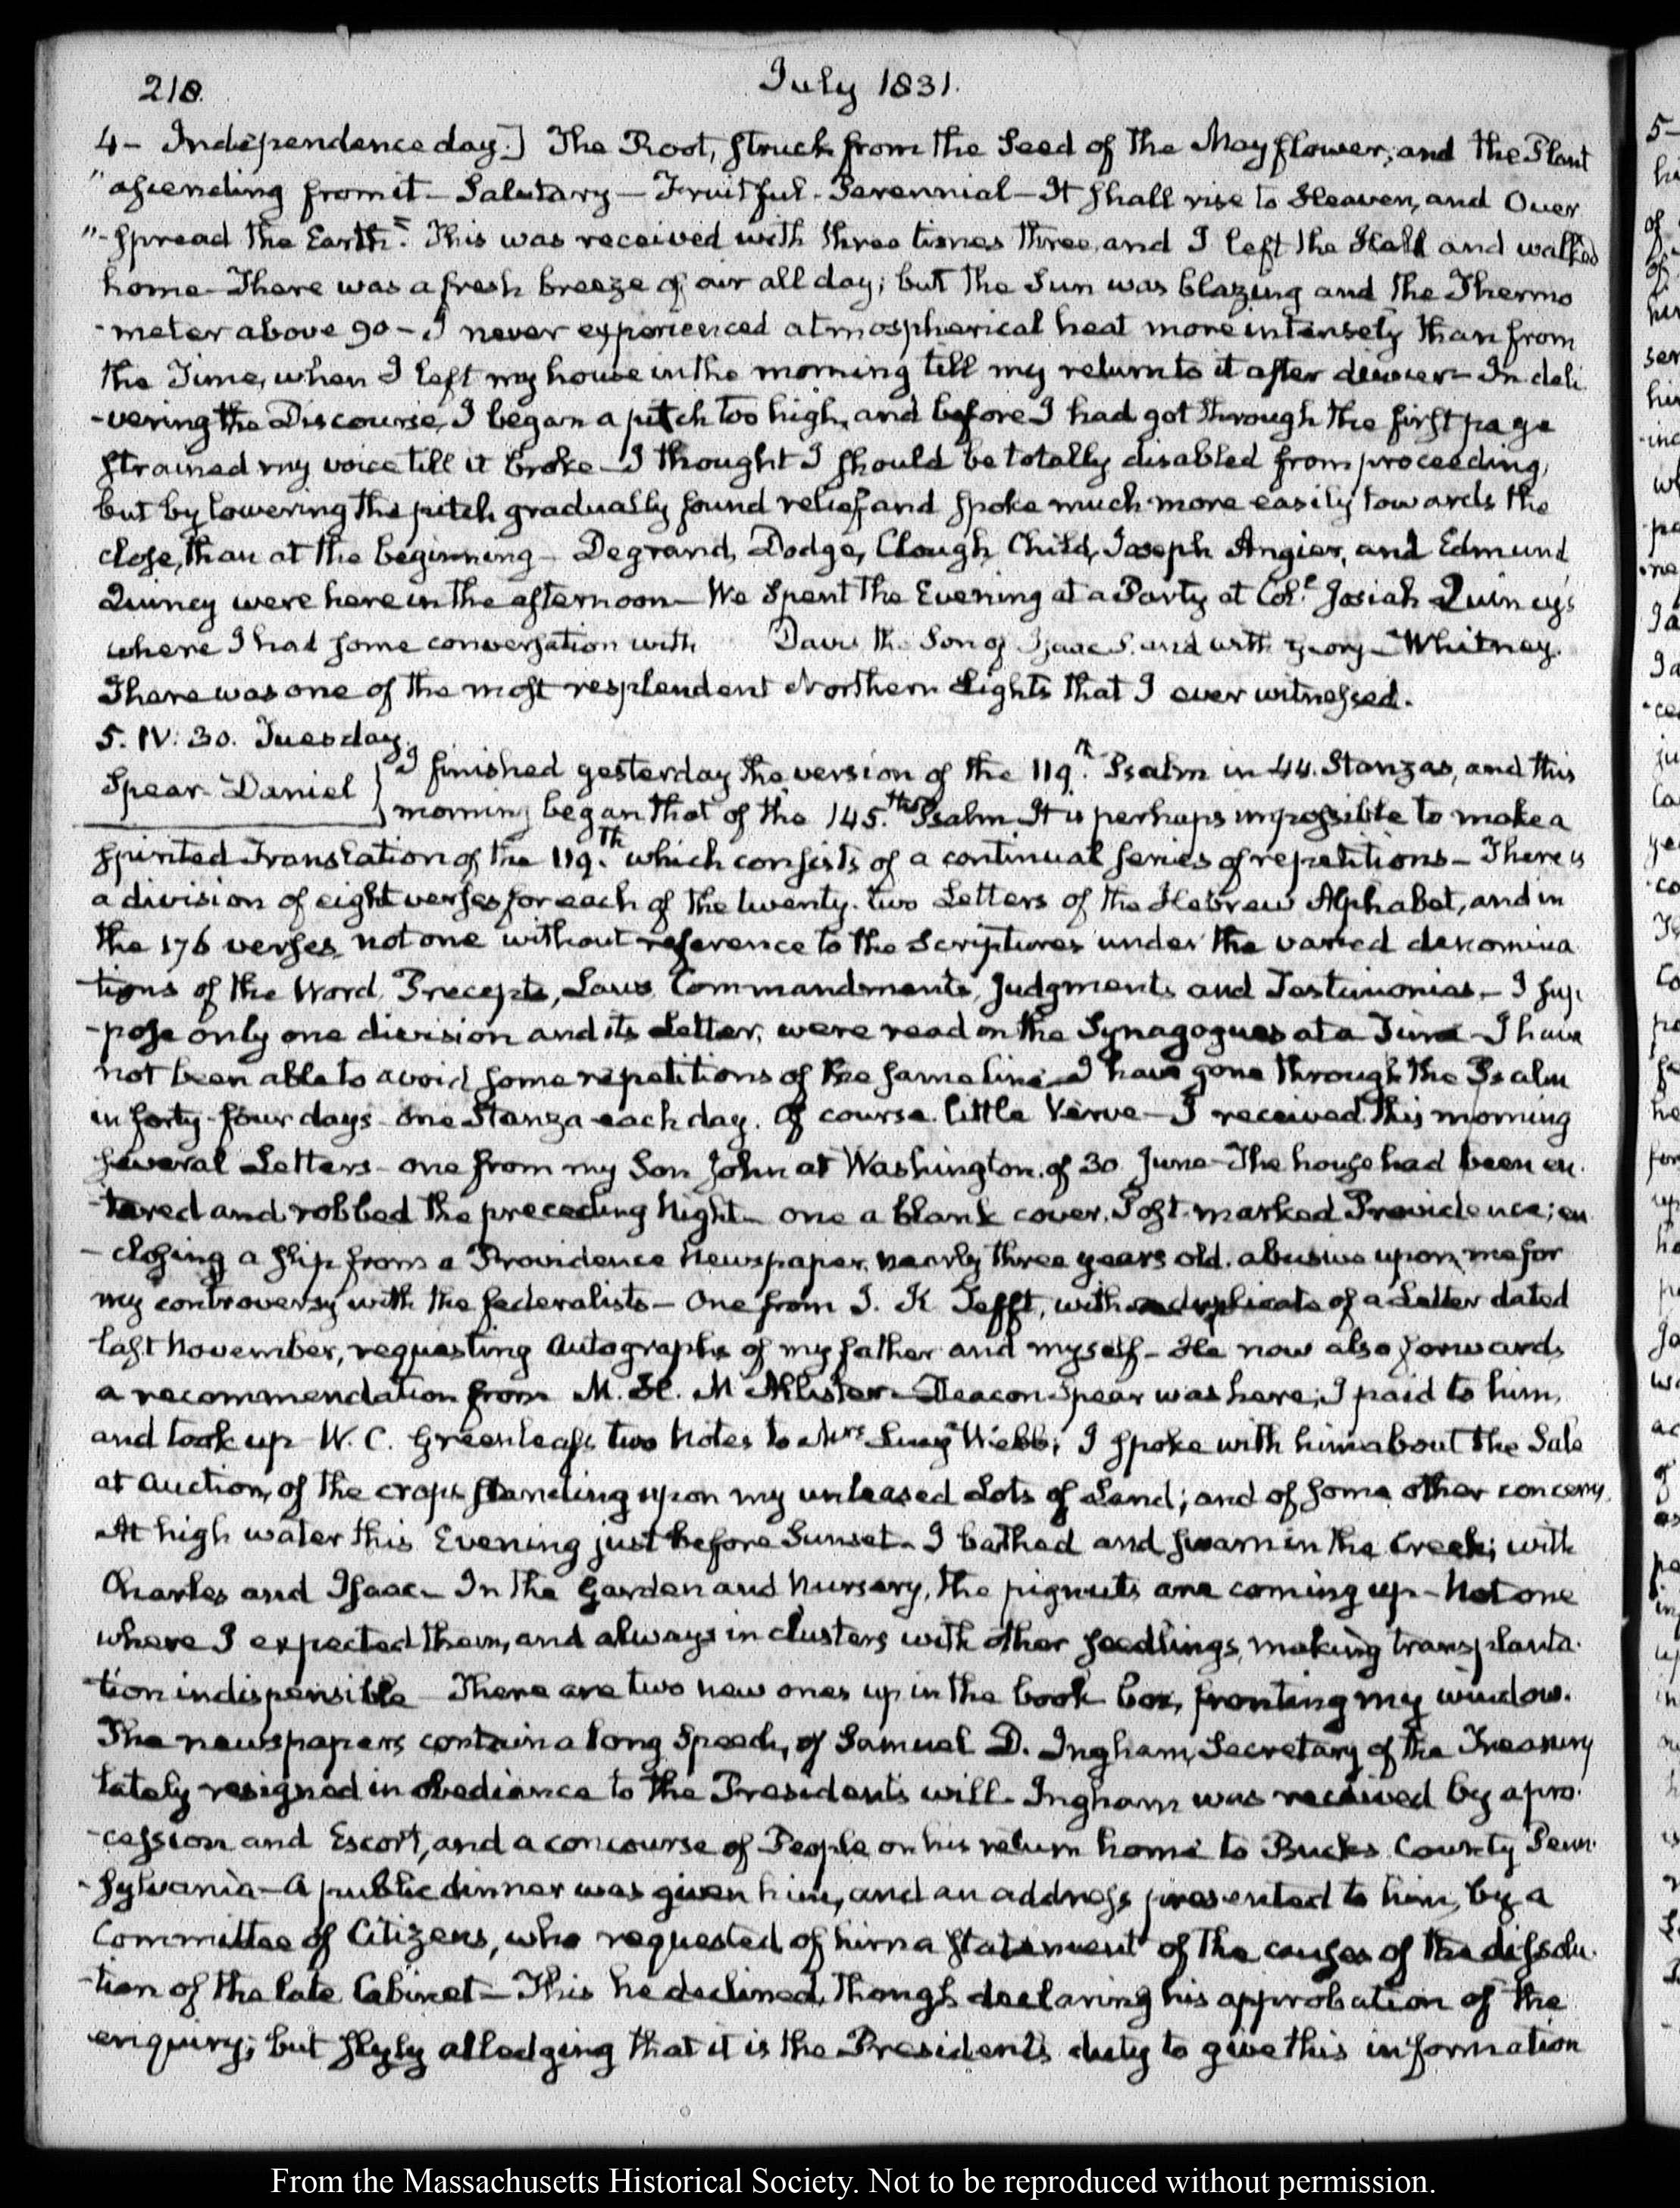 218.
July 1831.
4- Independence day.] The Root, struck from the Seed of the Mayflower, and the Plant
"ascending from it - Salutary - Fruitful - Perennial - It shall rise to Heaven, and Over
"-spread the Earth". This was received with three times three, and I left the Hall and walked
home - There was a fresh breeze of air all day; but the Sun was blazing and the Thermo
-meter above 90 - I never experienced atmospherical heat more intensely than from
the Time, when I left my house in the morning till my return to it after dinner - In deli
-vering the Discourse, I began a pitch too high, and before I had got through the first page
strained my voice till it broke - I thought I should be totally disabled from proceeding,
but by lowering the pitch gradually found relief, and spoke much more easily towards the
close, than at the beginning - Degrand, Dodge, Clough, Child, Joseph Angier, and Edmund
Quincy were here in the afternoon - We Spent the Evening at a Party at Col.l Josiah Quincy's
where I had some conversation with Davis the Son of Isaac P. and with George Whitney.
There was one of the most resplendent Northern Lights that I ever witnessed.
5. IV: 30. Tuesday.
Spear Daniel } I finished yesterday the version of the 119.th Psalm in 44. Stanzas, and this
morning began that of the 145.th Psalm - It is perhaps impossible to make a
spirited Translation of the 119.th which consists of a continual series of repetitions - There is
a division of eight verses for each of the twenty-two Letters of the Hebrew Alphabet, and in
the 176 verses, not one without reference to the Scriptures under the varied denomina
tions of the Word, Precepts, Laws, Commandments, Judgments and Testimonies. - I sup
-pose only one division and its Letter, were read in the Synagogues at a Time - I have
not been able to avoid some repetitions of the same line - I have gone through the Psalm
in forty-four days - one Stanza each day. Of course little Verve - I received this morning
several Letters - one from my Son John at Washington, of 30 June - The house had been en
-tered and robbed the preceding Night - one a blank cover, Post-marked Providence; en
-closing a slip from a Providence Newspaper, nearly three years old, abusive upon me for
my controversy with the federalists - One from I. K Tefft, with duplicate of a Letter dated
last November, requesting Autographs of my father and myself - He now also forwards
a recommendation from M. H. McAllister - Deacon Spear was here; I paid to him,
and took up W. C. Greenleaf's two Notes to Mrs Lucy Webb; I spoke with him about the Sale
at Auction, of the crops standing upon my unleased Lots of Land; and of some other concerns.
At high water this Evening just before Sunset - I bathed and swam in the Creek; with
Charles and Isaac - In the Garden and Nursery, the pignuts are coming up - Not one
where I expected them, and always in clusters with other seedlings, making transplanta
tion indispensible - There are two new ones up in the book box, fronting my window.
The newspapers contain a long Speech, of Samuel D. Ingham, Secretary of the Treasury
lately resigned in obedience to the Presidents will - Ingham was received by a pro
-cession and Escort, and a concourse of People on his return home to Bucks County Penn
-sylvania - A public dinner was given him, and an address presented to him, by a
Committee of Citizens, who requested of him a statement of the causes of the dissolu
-tion of the late Cabinet - This he declined, though declaring his approbation of the
enquiry; but slyly alledging that it is the President's duty to give this information
From the Massachusetts Historical Society. Not to be reproduced without permission.